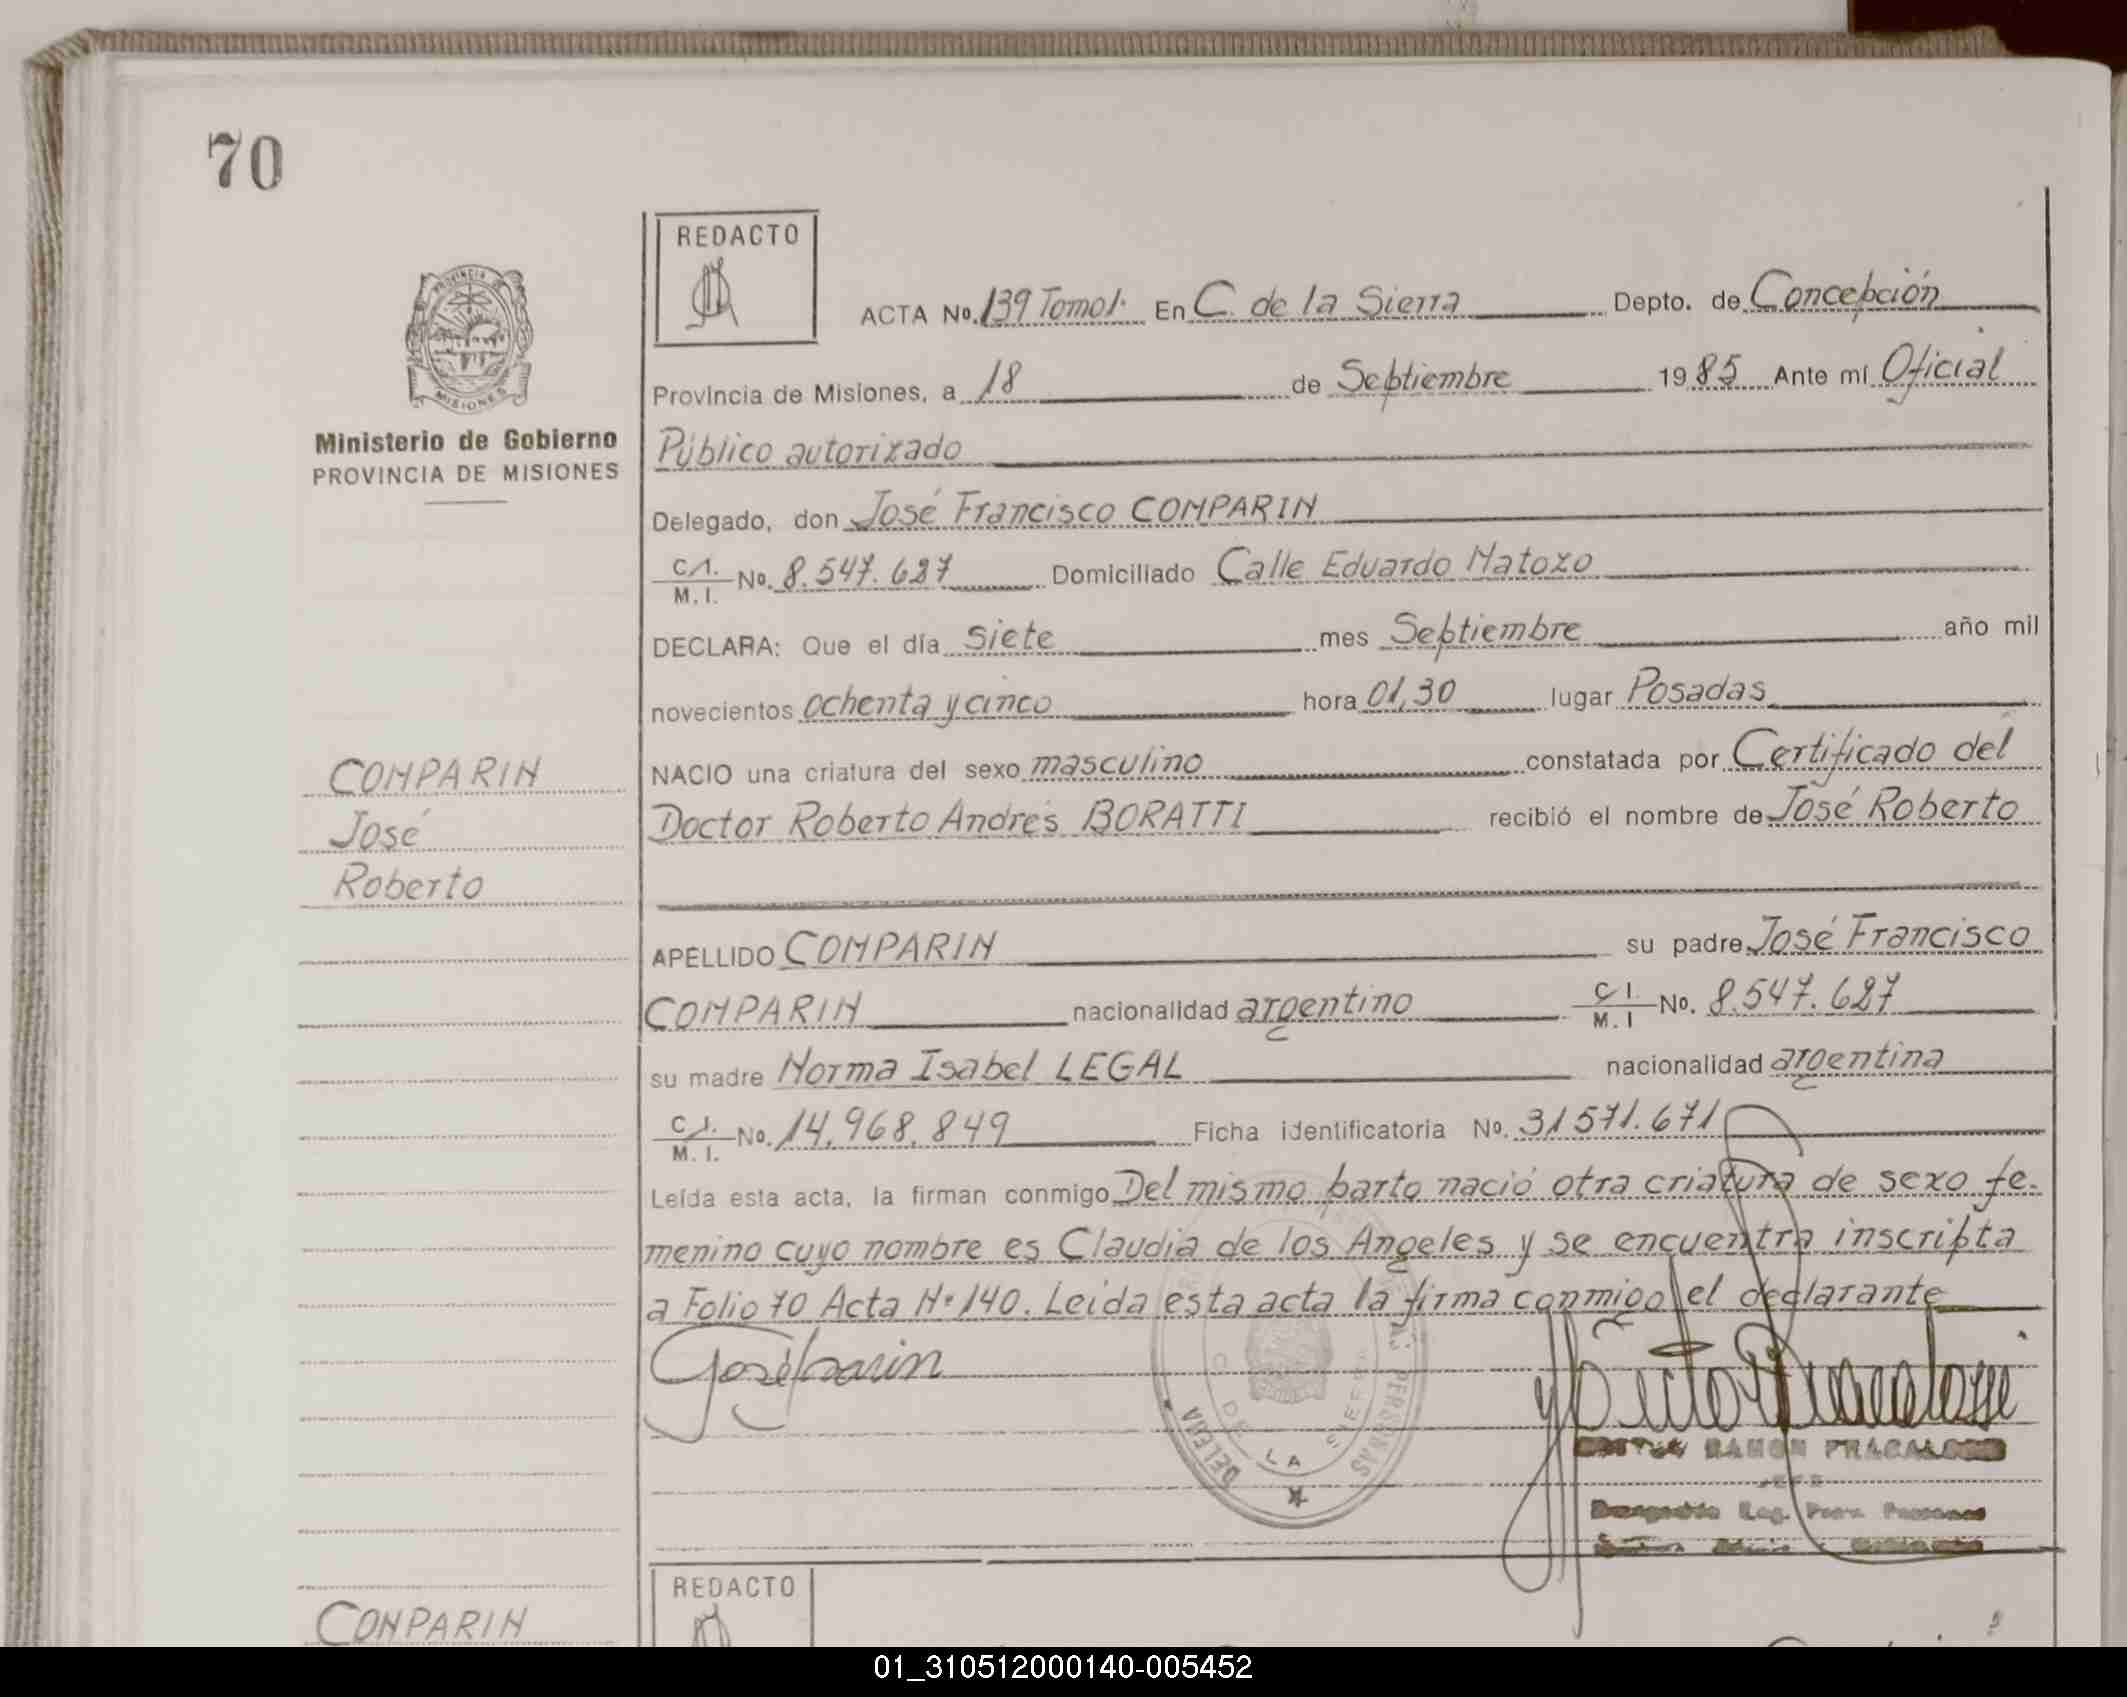 70
REDACTO
PROVINCIA DE
MISIONES
Ministerio de Gobierno
PROVINCIA DE MISIONES
ACTA No. 139 Tomo 1. En C. de la Sierra Depto. de Concepción
Provincia de Misiones, a 18 de Septiembre 1985 Ante mí Oficial
Público autorizado
Delegado, don José Francisco COMPARIN
C.I. M.I. No. 8.547.627 Domiciliado Calle Eduardo Matozo
DECLARA: Que el día siete mes Septiembre año mil
novecientos ochenta y cinco hora 01,30 lugar Posadas
NACIO una criatura del sexo masculino constatada por Certificado del
Doctor Roberto Andrés BORATTI recibió el nombre de José Roberto
COMPARIN
José
Roberto
APELLIDO COMPARIN su padre José Francisco
COMPARIN nacionalidad argentino C.I. M.I No. 8.547.627
su madre Norma Isabel LEGAL nacionalidad argentina
C.I. M.I. No. 14.968.849 Ficha identificatoria No. 31571.671
Leída esta acta, la firman conmigo Del mismo parto nació otra criatura de sexo fe-
menino cuyo nombre es Claudia de los Angeles y se encuentra inscripta
a Folio 70 Acta N° 140. Leida esta acta la firma conmigo el declarante
DE LA
PERSONAS
RAMON
JEFE
REDACTO
COMPARIN
01_310512000140-005452